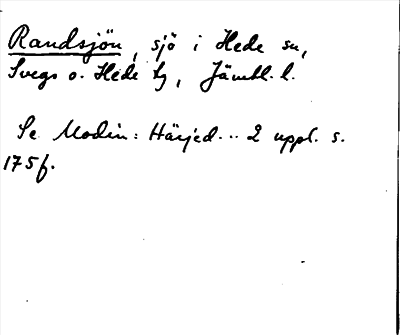 Randsjön, sjö i Hede sn,
Svegs o. Hede tg, Jämtl. l.
Se Modin: Härjed... 2 uppl. s.
175f.